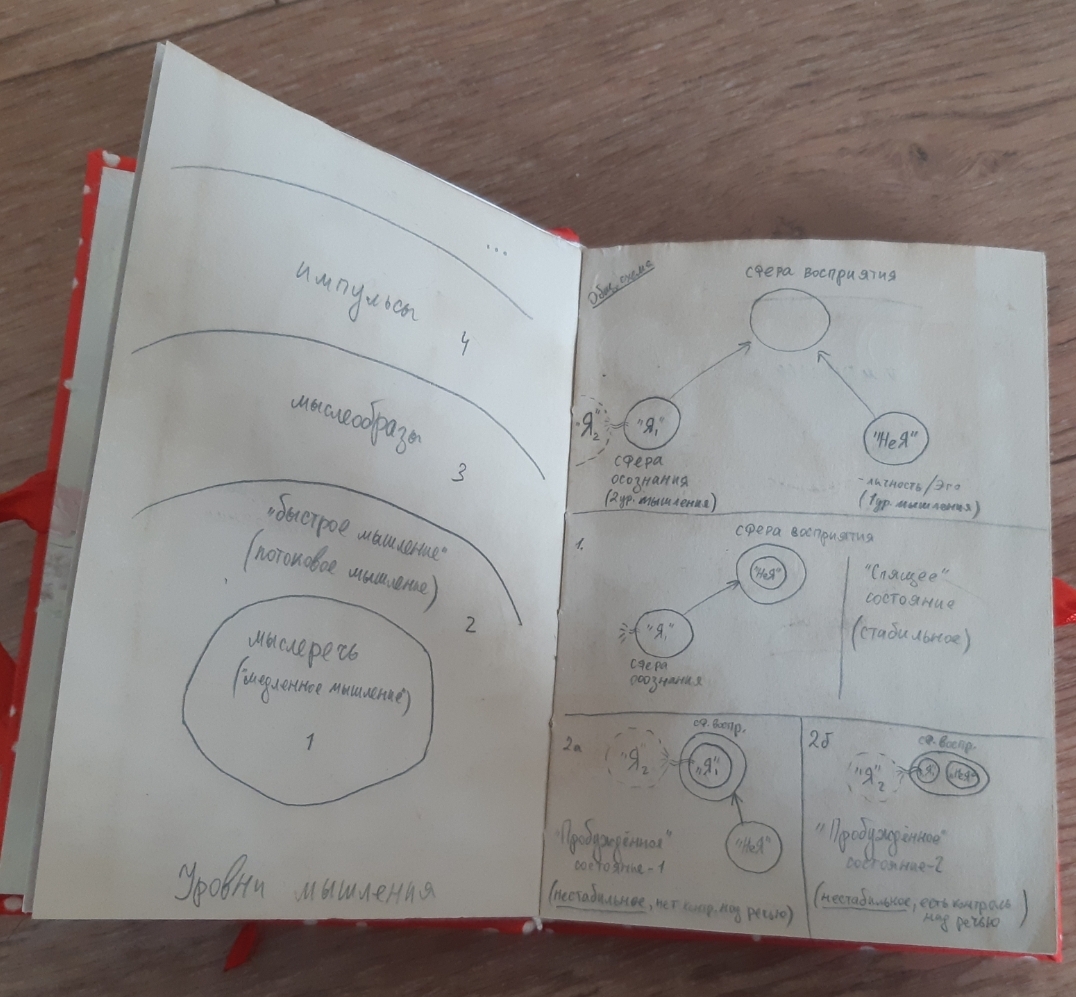 ...
импульсы
4
мыслеобразы
3
"быстрое мышление"
(потоковое мышление)
2
мыслеречь
("медленное мышление")
1
Уровни мышления
Общ. схема
сфера восприятия
"Я₂"
"Я₁"
"НеЯ"
сфера
осознания
(2ур. мышления)
- личность/Эго
(1ур. мышления)
1.
сфера восприятия
"НеЯ"
"Я₁"
сфера
осознания
"Спящее"
состояние
(стабильное)
2а
сф. воспр.
"Я₂"
"Я₁"
"НеЯ"
"Пробуждённое"
состояние-1
(нестабильное, нет контр. над речью)
2б
сф. воспр.
"Я₂"
"Я₁"
"НеЯ"
"Пробуждённое"
состояние-2
(нестабильное, есть контроль
над речью)